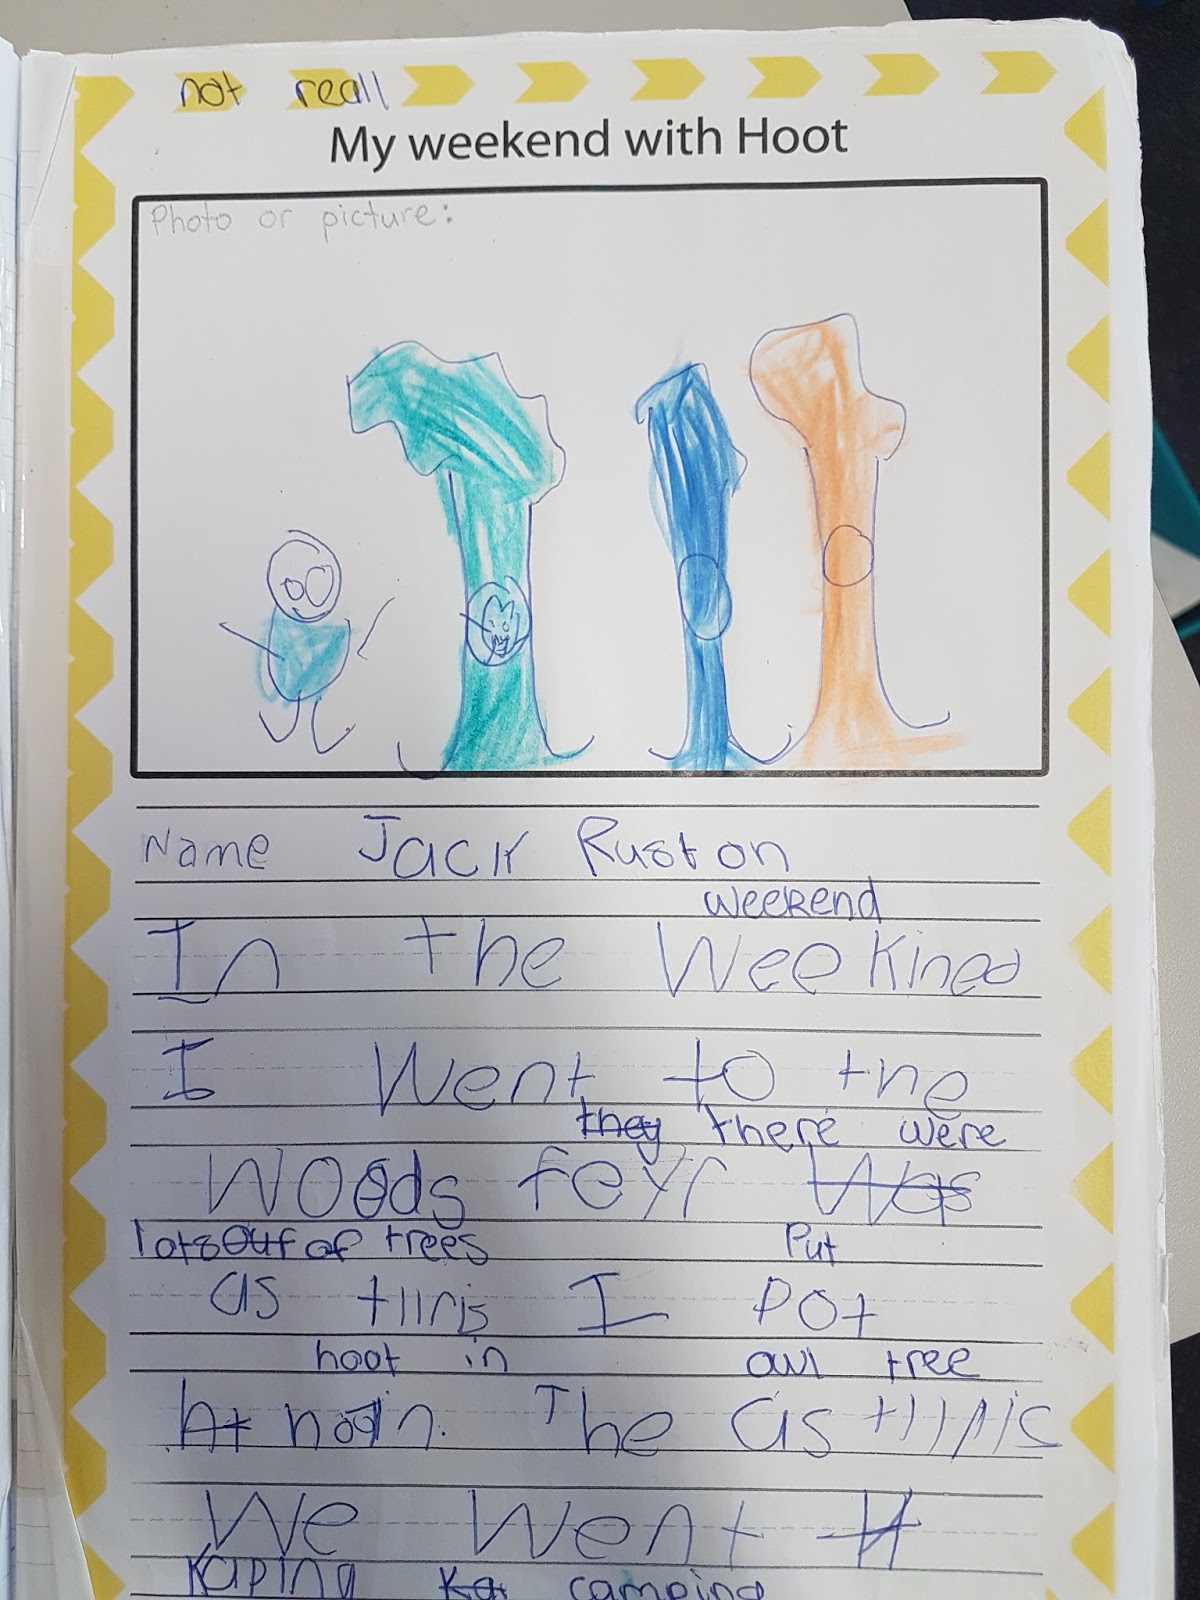 not reall
My weekend with Hoot
Photo or picture:
Name Jack Ruston
weekend
In the Weekined
I Went to the
they there were
Woods feyr Was
lotsout of trees Put
as tliris I pot
hoot in owl tree
ht hootin. The as
We Went H
Kaping Ka camping